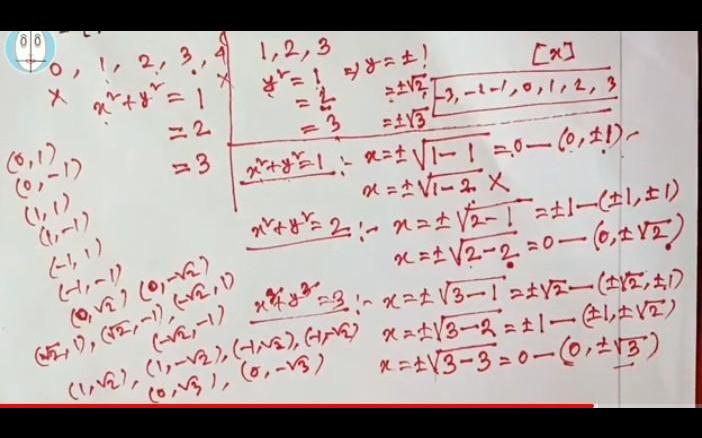 0, 1, 2, 3, 4
x x
x²+y² = 1
= 2
= 3
(0, 1)
(0, -1)
(1, 1)
(1, -1)
(-1, 1)
(-1, -1)
(0, √2) (0, -√2)
(√2, 1), (√2, -1), (-√2, 1)
(-√2, -1)
(1, √2), (1, -√2), (-1, √2), (-1, -√2)
(0, √3), (0, -√3)
1, 2, 3
y² = 1 ⇒ y = ±1
= 2 = ±√2
= 3 = ±√3
[x]
-3, -2 -1, 0, 1, 2, 3
x²+y²=1 :- x = ±√1-1 = 0 — (0, ±1)
x = ±√1-2 X
x²+y²=2 :- x = ±√2-1 = ±1 — (±1, ±1)
x = ±√2-2 = 0 — (0, ±√2)
x²+y²=3 :- x = ±√3-1 = ±√2 — (±√2, ±1)
x = ±√3-2 = ±1 — (±1, ±√2)
x = ±√3-3 = 0 — (0, ±√3)